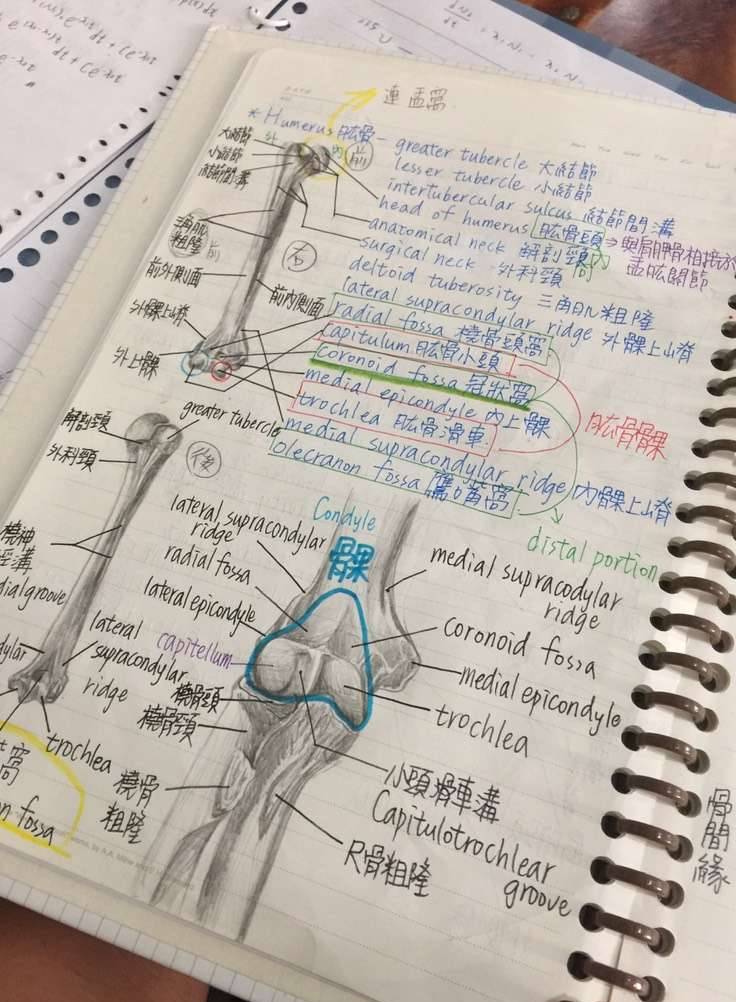 連盂窩
* Humerus 肱骨 -
greater tubercle 大結節
lesser tubercle 小結節
intertubercular sulcus 結節間溝
head of humerus 肱骨頭 ⇒ 與肩胛骨相接於
盂肱關節
anatomical neck 解剖頸
surgical neck 外科頸
deltoid tuberosity 三角肌粗隆
lateral supracondylar ridge 外髁上嵴
radial fossa 橈骨頭窩
capitulum 肱骨小頭
coronoid fossa 冠狀窩
medial epicondyle 內上髁
trochlea 肱骨滑車
medial supracondylar ridge 內髁上嵴
olecranon fossa 鷹嘴窩
肱骨髁
distal portion
大結節
小結節
結節間溝
外
內
前
粗隆
前
右
前外側面
前內側面
外髁上嵴
外上髁
解剖頸
外科頸
greater tubercle
後
橈神
groove
lateral
supracondylar
ridge
trochlea
窩
fossa
Condyle
髁
lateral supracondylar
ridge
radial fossa
lateral epicondyle
capitellum
橈骨頭
橈骨頸
橈骨
粗隆
medial supracodylar
ridge
coronoid fossa
medial epicondyle
trochlea
小頭滑車溝
Capitulotrochlear
groove
尺骨粗隆
骨間緣